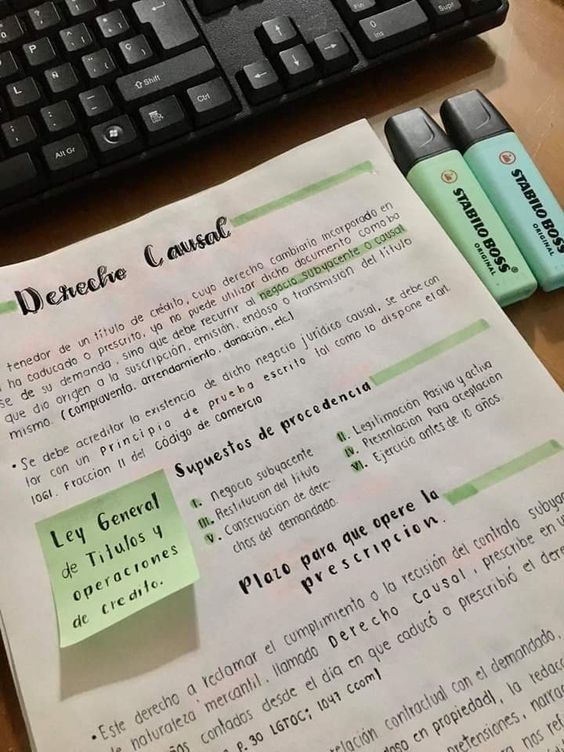 Derecho Causal
tenedor de un título de crédito, cuyo derecho cambiario incorporado en
ha caducado o prescrito, ya no puede utilizar dicho documento como ba
se de su demanda, sino que debe recurrir al negocio subyacente o causal
que dio origen a la suscripción, emisión, endoso o transmisión del título
mismo. (Compraventa, arrendamiento, donación, etc.)
• Se debe acreditar la existencia de dicho negocio jurídico causal, se debe con
tar con un Principio de prueba escrito tal como lo dispone el art.
1061. Fraccion II del Código de comercio
Supuestos de procedencia
I. Negocio subyacente
II. Legitimación Pasiva y activa
III. Restitución del titulo
IV. Presentación Para aceptación
V. Conservación de dere-
chos del demandado.
VI. Ejercicio antes de 10 años.
Ley General
de Titulos y
operaciones
de credito.
Plazo para que opere la
prescripcion.
• Este derecho a reclamar el cumplimiento o la recisión del contrato subya
naturaleza mercantil. llamado Derecho Causal, prescribe en
contados desde el día en que caducó o prescribió el dere
P. 30 LGTOC; 1047 CCom)
relación contractual con el demandado,
en propiedad), la redac
pretensiones, narra
nos ref
STABILO BOSS
ORIGINAL
STABILO BOSS
ORIGINAL
Shift
Ctrl
Alt Gr
Ins
0